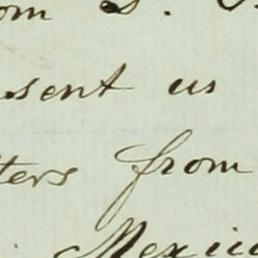 om S.
sent us
ters from
Mexico